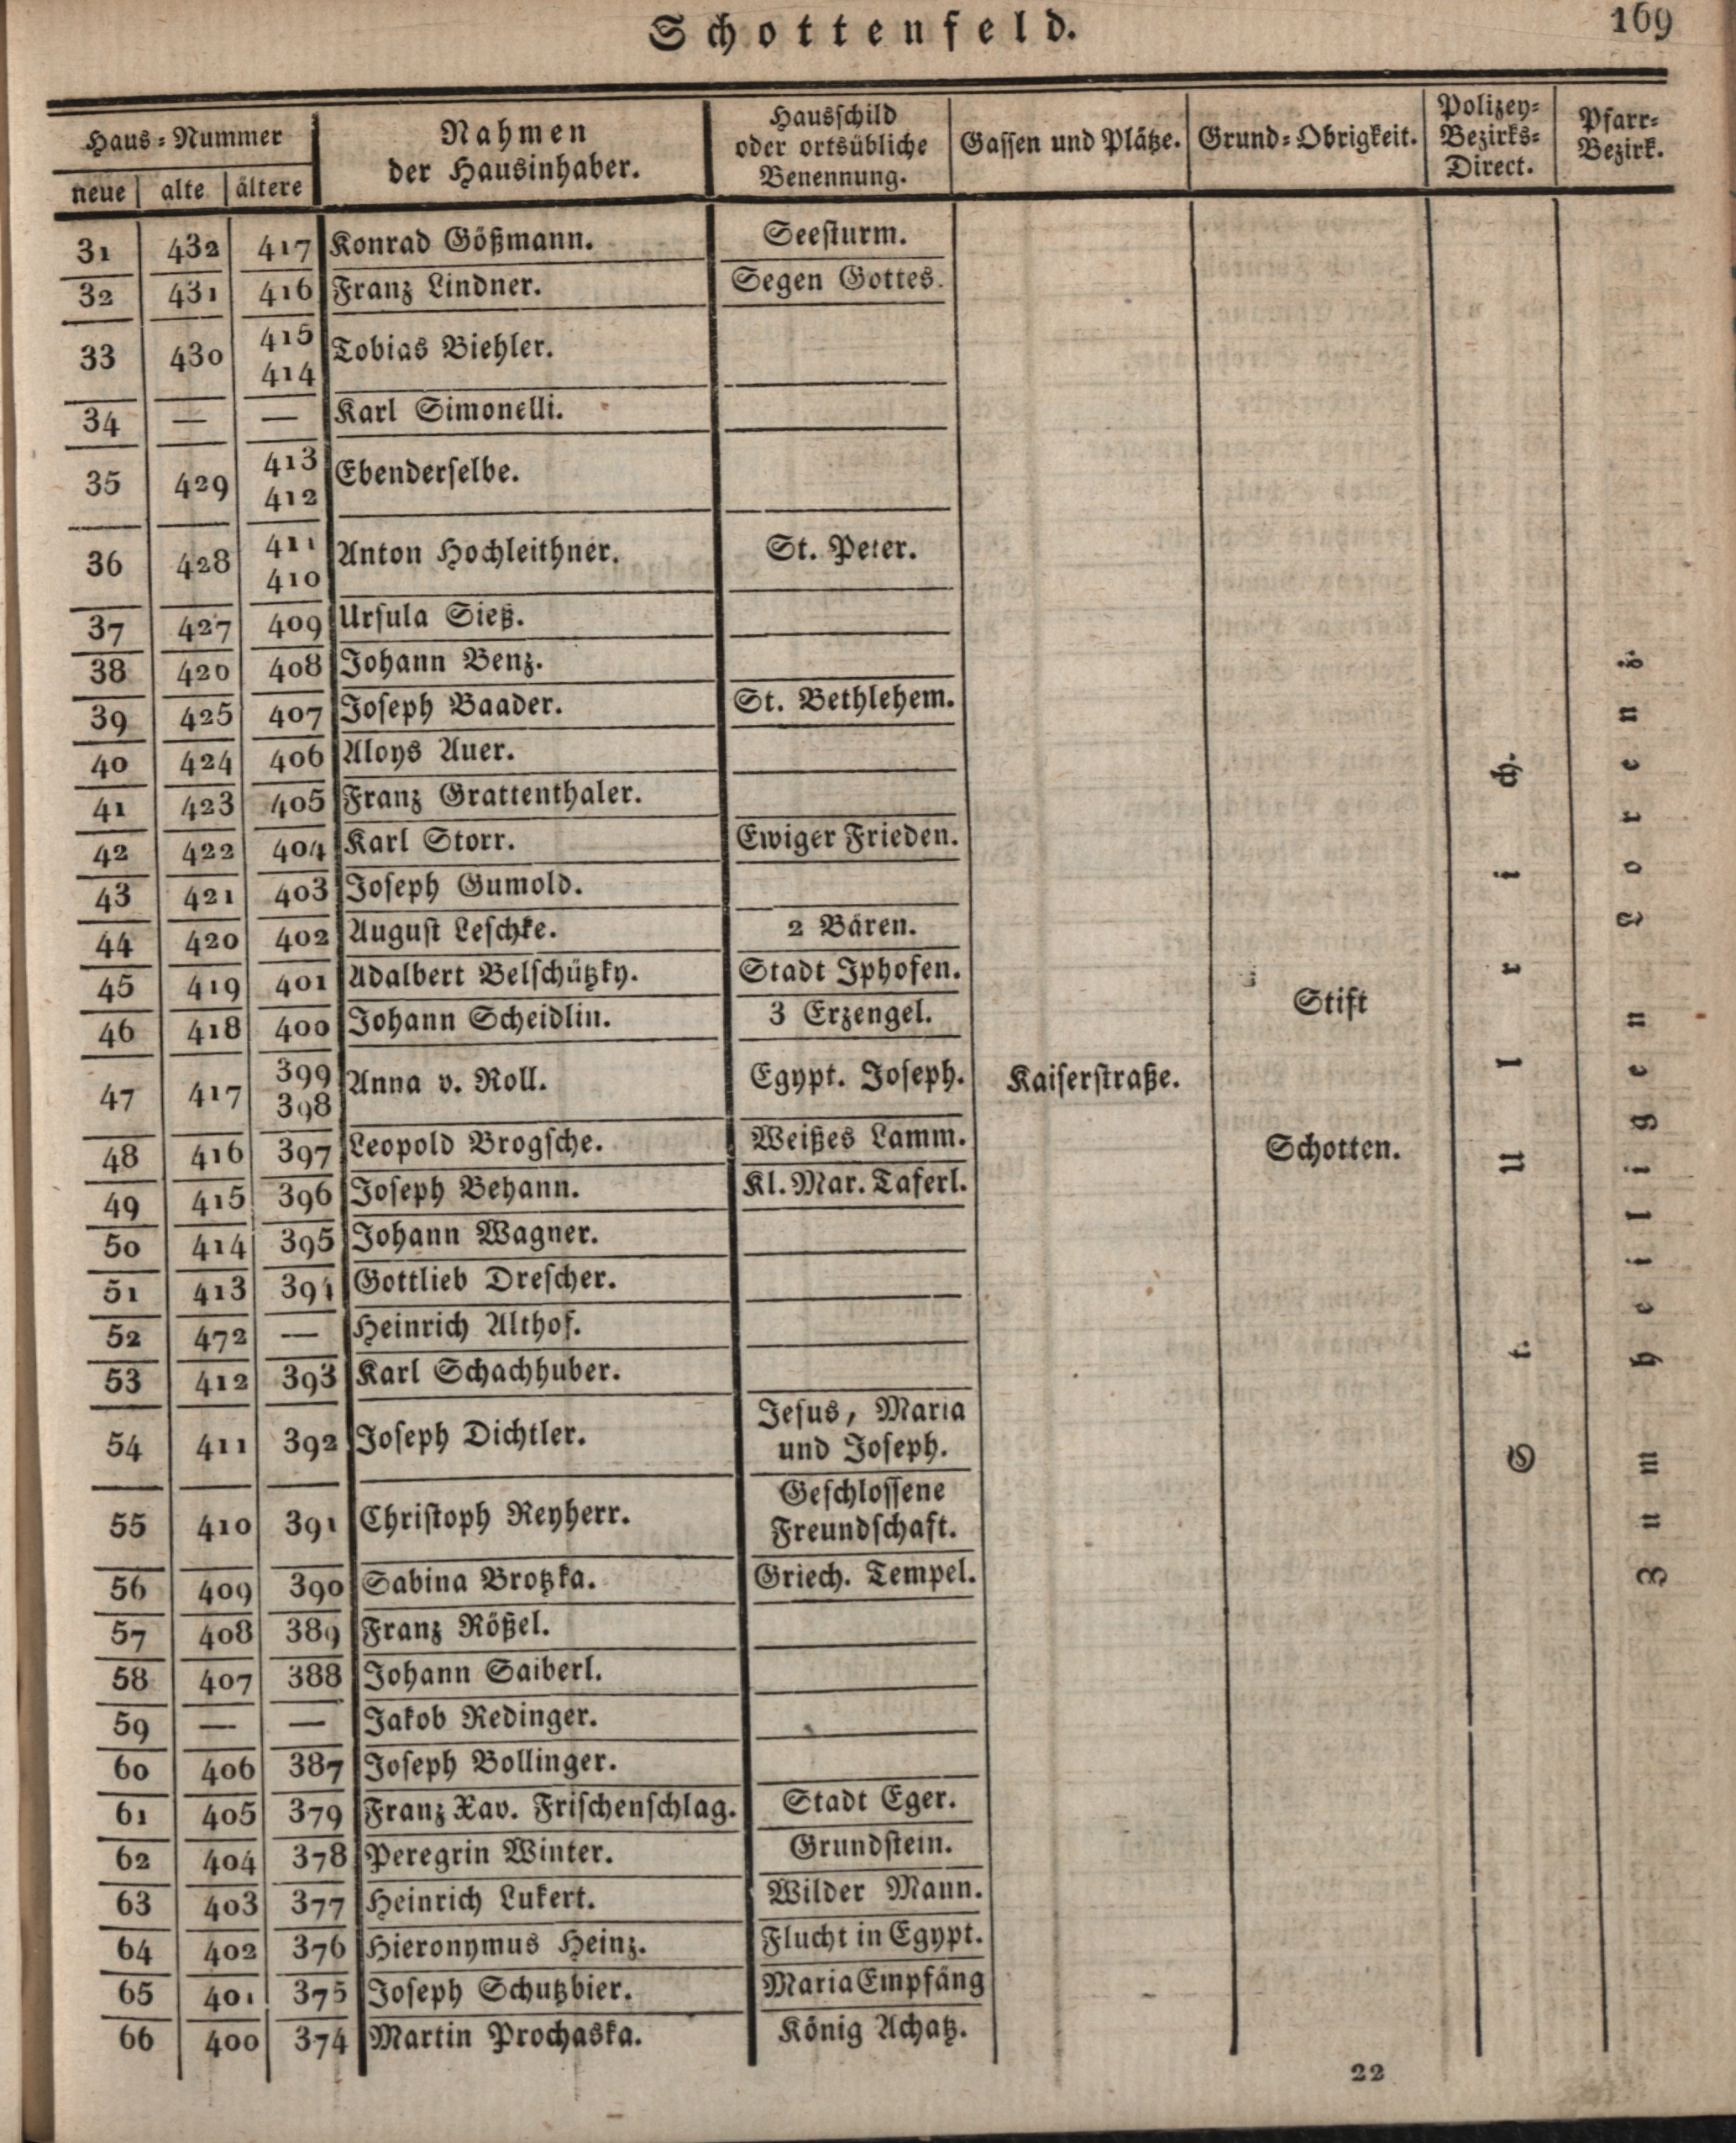 Schottenfeld.
169
Haus-Nummer
neue
alte
ältere
Nahmen
der Hausinhaber.
Hausschild
oder ortsübliche
Benennung.
Gassen und Plätze.
Grund-Obrigkeit.
Polizey-
Bezirks-
Direct.
Pfarr-
Bezirk.
31 432 417 Konrad Gößmann. Seesturm.
32 431 416 Franz Lindner. Segen Gottes.
33 430 415 414 Tobias Biehler.
34 — — Karl Simonelli.
35 429 413 412 Ebenderselbe.
36 428 411 410 Anton Hochleithner. St. Peter.
37 427 409 Ursula Sieß.
38 420 408 Johann Benz.
39 425 407 Joseph Baader. St. Bethlehem.
40 424 406 Aloys Auer.
41 423 405 Franz Grattenthaler.
42 422 404 Karl Storr. Ewiger Frieden.
43 421 403 Joseph Gumold.
44 420 402 August Leschke. 2 Bären.
45 419 401 Adalbert Belschützky. Stadt Iphofen.
46 418 400 Johann Scheidlin. 3 Erzengel.
47 417 399 398 Anna v. Roll. Egypt. Joseph.
48 416 397 Leopold Brogsche. Weißes Lamm.
49 415 396 Joseph Behann. Kl. Mar. Taferl.
50 414 395 Johann Wagner.
51 413 394 Gottlieb Drescher.
52 472 — Heinrich Althof.
53 412 393 Karl Schachhuber.
54 411 392 Joseph Dichtler. Jesus, Maria
und Joseph.
55 410 391 Christoph Reyherr. Geschlossene
Freundschaft.
56 409 390 Sabina Brotzka. Griech. Tempel.
57 408 389 Franz Rößel.
58 407 388 Johann Saiberl.
59 — — Jakob Redinger.
60 406 387 Joseph Bollinger.
61 405 379 Franz Xav. Frischenschlag. Stadt Eger.
62 404 378 Peregrin Winter. Grundstein.
63 403 377 Heinrich Lukert. Wilder Mann.
64 402 376 Hieronymus Heinz. Flucht in Egypt.
65 401 375 Joseph Schutzbier. Maria Empfäng
66 400 374 Martin Prochaska. König Achatz.
Kaiserstraße.
Stift
Schotten.
St. Ulrich.
Zum heiligen Lorenz.
22